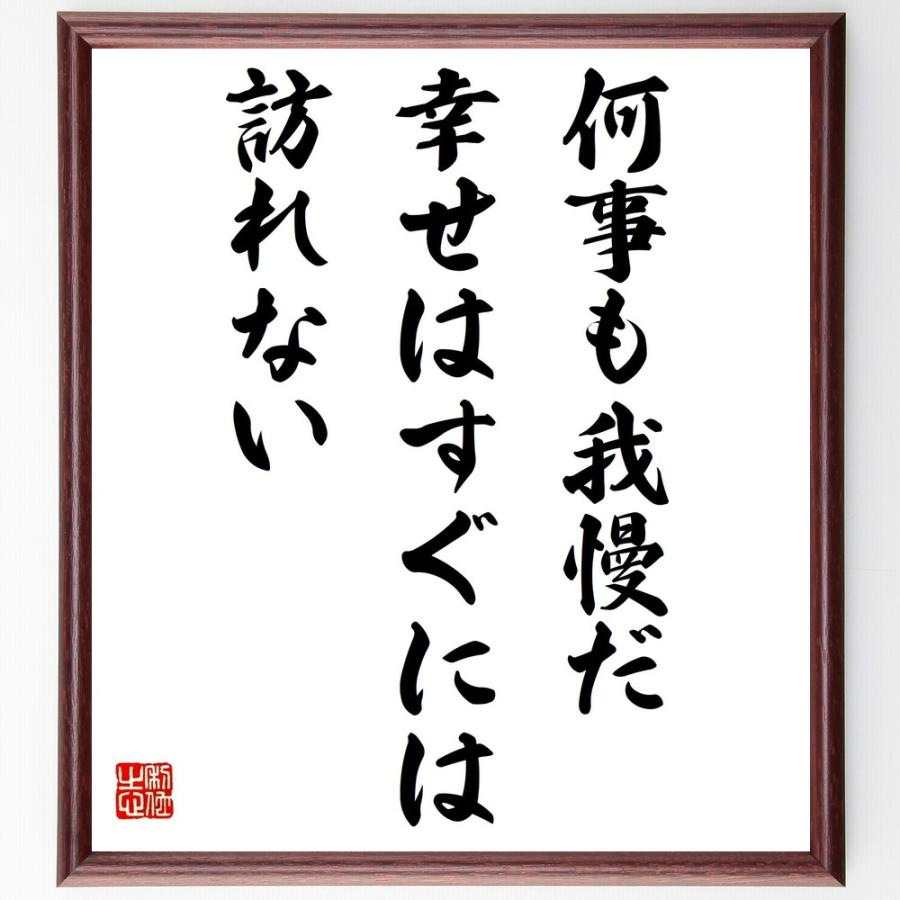 何事も我慢だ
幸せはすぐには
訪れない